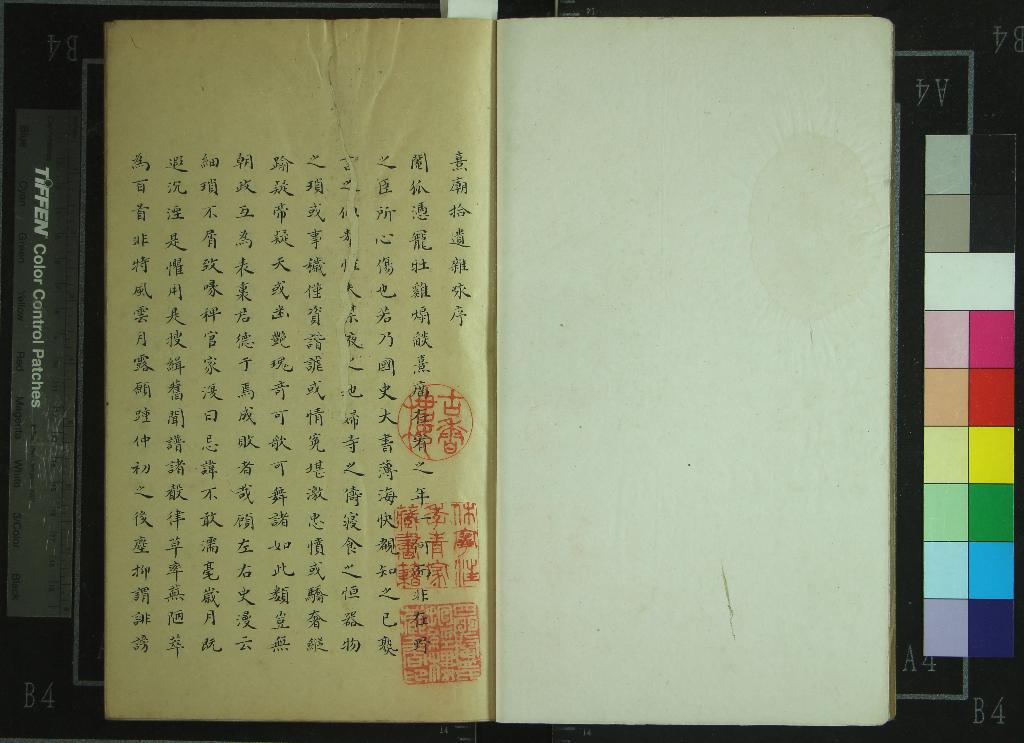 熹廟拾遺雜咏序
閹狐憑寵牡雞煽燄熹廟在宥之年一何
非在野
之臣所心傷也若乃國史大書薄海快覩知之已爽
之
夜之
也婦寺之儔寢食之恒器物
之瑣或事穢僅資諧謔或情寃堪激忠憤或驕奢縱
踰疑帝疑天或幽艷瑰奇可歌可舞諸如此類豈無
朝政互為表裏君德于焉成敗者哉顧左右史漫云
細瑣不屑致喙稗官家漫曰忌諱不敢濡毫歲月既
遐沉湮是懼用是搜緝舊聞譜諸聲律草率蕪陋萃
為百首非特風雲月露願踵仲初之後塵抑謂誹謗
古香樓
休寧汪
季青家
藏書籍
TIFFEN Color Control Patches
Blue Cyan Green Yellow Red Magenta White 3/Color Black
B4
A4
B4
B4
A4
B4